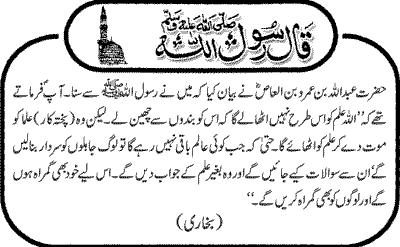 قال رسول اللہ صلی اللہ علیہ وسلم
حضرت عبداللہ بن عمرو بن العاصؓ نے بیان کیا کہ میں نے رسول اللہ ﷺ سے سنا۔ آپؐ فرماتے
تھے کہ ’’اللہ علم کو اس طرح نہیں اٹھا لے گا کہ اس کو بندوں سے چھین لے۔ لیکن وہ (پختہ کار) علما کو
موت دے کر علم کو اٹھائے گا۔ حتیٰ کہ جب کوئی عالم باقی نہیں رہے گا تو لوگ جاہلوں کو سردار بنالیں
گے ان سے سوالات کیے جائیں گے اور وہ بغیر علم کے جواب دیں گے۔ اس لیے خود بھی گمراہ ہوں
گے اور لوگوں کو بھی گمراہ کریں گے۔‘‘
(بخاری)